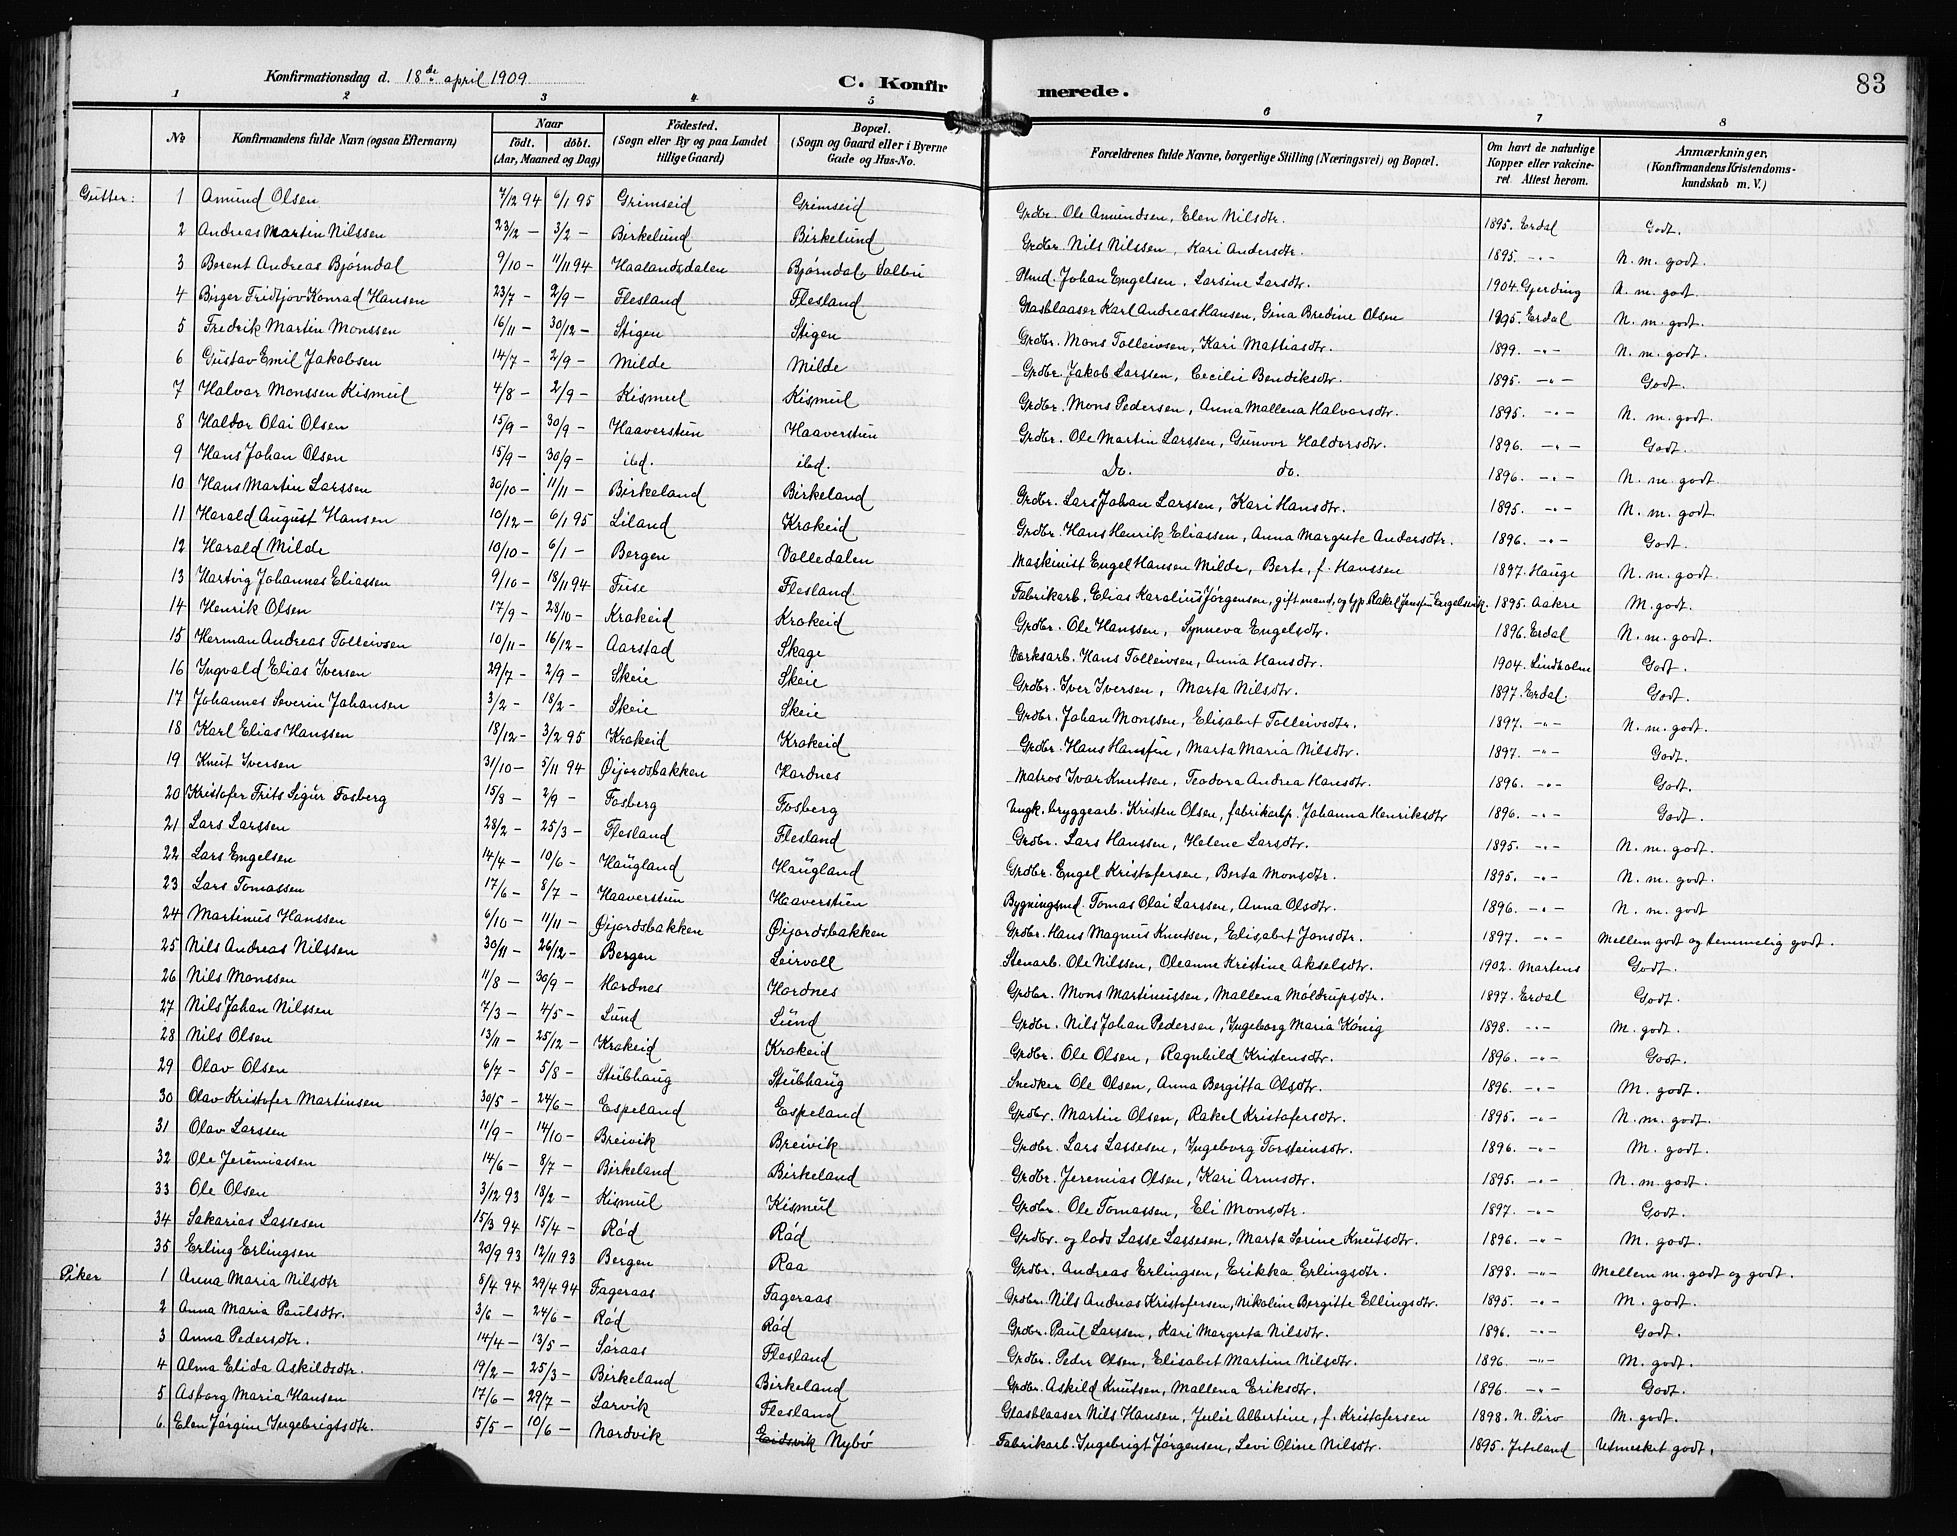 Konfirmationsdag d. 18de april 1909. C. Konfirmerede. 83
1 2 3 4 5 6 7 8
No Konfirmandens fulde Navn (ogsaa Efternavn) Naar født. døbt. (Aar, Maaned og Dag) Fødested. (Sogn eller By og paa Landet tillige Gaard) Bopæl. (Sogn og Gaard eller i Byerne Gade og Hus-No. Forældrenes fulde Navne, borgerlige Stilling (Næringsvei) og Bopæl. Om havt de naturlige Kopper eller vakcineret Attest herom. Anmærkninger. (Konfirmandens Kristendomskundskab m. V.)
Gutter: 1 Amund Olsen 7/12 94 6/1 95 Grimseid Grimseid Grdbr. Ole Amundsen, Elen Nilsdtr. 1895. Erdal Godt.
2 Andreas Martin Nilssen 23/12 – 3/2 – Birkelund Birkelund Grdbr. Nils Nilssen, Kari Andersdtr. 1895. -"- N. m. godt.
3 Berent Andreas Bjørndal 9/10 – 11/11 94 Haalandsdalen Bjørndal, Johan Engelsen, Larsine Larsdtr. 1904. Gjerding N. m. godt.
4 Birger Fridtjov Konrad Hansen 23/7 – 2/9 – Flesland Flesland Glasblaaser Karl Andreas Hansen, Gina Bredine Olsen 1895. Erdal N. m. godt.
5 Fredrik Martin Monssen 16/11 – 30/12 – Stigen Stigen Grdbr. Mons Tolleivsen, Kari Mattiasdtr. 1899. -"- N. m. godt.
6 Gustav Emil Jakobsen 14/7 – 2/9 – Milde Milde Grdbr. Jakob Larssen, Cecilie Bendiksdtr. 1895. -"- Godt.
7 Halvar Monssen Kismul 4/8 – 2/9 – Kismul Kismul Grdbr. Mons Pedersen, Anna Mallena Halvorsdtr. 1895. -"- N. m. godt.
8 Haldor Olai Olsen 15/9 – 30/9 – Haaverstun Haaverstun Grdbr. Ole Martin Larssen, Gunvor Haldorsdtr. 1896 -"- Godt.
9 Hans Johan Olsen 15/9 – 30/9 – ibd. ibd. Do. do. 1896 -"- N. m. godt.
10 Hans Martin Larssen 30/10 – 11/11 – Birkeland Birkeland Grdbr. Lars Johan Larssen, Kari Hansdtr. 1895. -"- N. m. godt.
11 Harald August Hansen 10/12 – 6/1 95 Liland Krakeid Grdbr. Hans Henrik Eliassen, Anna Margrete Andersdtr. 1896. -"- Godt.
12 Harald Milde 10/10 – 6/1 – Bergen Valledalen Maskinist Engel Hansen Milde, Berte, f. Hanssen 1897. Hauge N. m. godt.
13 Hartvig Johannes Eliassen 9/10 – 18/11 94 Flesland. Fabrikarb. Elias Karalius Jørgensen, gift mand, og 1895. Aakre M. godt.
14 Henrik Olsen 17/9 – 28/10 – Krakeid Krakeid Grdbr. Ole Hanssen, Synneva Engelsdtr. 1896. Erdal N. m. godt.
15 Herman Andreas Tolleivsen 10/11 – 16/12 – Aarstad Skage Verksarb. Hans Tolleivsen, Anna Hansdtr. 1904. Lindholm Godt.
16 Ingvald Elias Iversen 29/7 – 2/9 – Skeie Skeie Grdbr. Iver Iversen, Marta Nilsdtr. 1897. Erdal. Godt.
17 Johannes Severin Johansen 3/2 – 18/2 – Skeie Skeie Grdbr. Johan Monssen, Elisabet Tolleivsdtr. 1897. -"- N. m. godt.
18 Karl Elias Hanssen 18/12 – 3/2 95 Krakeid Krakeid Grdbr. Hans Hanssen, Marta Maria Nilsdtr. 1897. -"- Godt.
19 Knut Iversen 31/10 – 5/11 94 Øijordsbakken Hordnes Matros Ivar Knutsen, Teodora Andrea Hansdtr. 1896. -"- Godt.
20 Kristofer Frits Sigur Fosberg 15/8 – 2/9 – Fosberg Fosberg Ungk. bryggearb. Kristen Olsen, Johanna Henriksdtr 1896. -"- Godt.
21 Lars Larssen 28/2 – 25/3 – Flesland Flesland Grdbr. Lars Hanssen, Helene Larsdtr. 1895. -"- N. m. godt.
22 Lars Engelsen 14/4 – 10/6 – Haugland Haugland Grdbr. Engel Kristofersen, Berta Monsdtr. 1895. -"- N. m. godt.
23 Lars Tomassen 17/6 – 8/7 – Haaverstun Haaverstun Bygningsmd. Tomas Olai Larssen, Anna Olsdtr. 1896. -"- N. m. godt
24 Martinus Hanssen 6/10 – 11/11 – Øijordsbakken Øijordsbakken Grdbr. Hans Magnus Knutsen, Elisabet Jonsdtr. 1897. -"- Mellem godt og temmelig godt.
25 Nils Andreas Nilssen 30/11 – 26/12 – Bergen Leirvoll Stenarb. Ole Nilssen, Oleanne Kristine Akselsdtr. 1902. Martens Godt.
26 Nils Monssen 11/8 – 30/9 – Hordnes Hordnes Grdbr. Mons Martinussen, Mallena Møldrupsdtr. 1897. Erdal Godt.
27 Nils Johan Nilssen 7/3 – 4/5 – Lund Lund Grdbr. Nils Johan Pedersen, Ingeborg Maria König 1898. -"- M. godt.
28 Nils Olsen 13/11 – 25/12 – Krakeid Krakeid Grdbr. Ole Olsen, Ragnhild Kristensdtr. 1896. -"- Godt.
29 Olav Olsen 6/7 – 5/8 – Stubhaug Stubhaug Snedker Ole Olsen, Anna Bergitta Olsdtr. 1896. -"- M. godt.
30 Olav Kristofer Martinsen 30/5 – 24/6 – Espeland Espeland Grdbr. Martin Olsen, Rakel Kristofersdtr. 1895. -"- N. m. godt.
31 Olav Larssen 11/9 – 14/10 – Breivik Breivik Grdbr. Lars Lassesen, Ingeborg Torsteinsdtr. 1896. -"- M. godt.
32 Ole Jeremiassen 14/6 – 8/7 – Birkeland Birkeland Grdbr. Jeremias Olsen, Kari Arnsdtr. 1895. -"- N. m. godt.
33 Ole Olsen 3/12 93 18/2 – Kismul Kismul Grdbr. Ole Tomassen, Eli Monsdtr. 1897. -"- Godt.
34 Sakarias Lassesen 15/3 94 15/4 – Rød Rød Grdbr. og lods Lasse Lassesen, Marta Serine Knutsdtr. 1896. -"- M. godt.
35 Erling Erlingsen 20/9 93 12/11 93 Bergen Raa Grdbr. Andreas Erlingsen, Erikka Erlingsdtr. 1898. -"- Mellem m. godt og godt.
Piker 1 Anna Maria Nilsdtr 8/4 94 29/4 94 Fageraas Fageraas Grdbr. Nils Andreas Kristofersen, Nikoline Bergitte Ellingsdtr. 1895. -"- M. godt.
2 Anna Maria Paulsdtr. 3/6 – 24/6 – Rød Rød Grdbr. Paul Larssen, Kari Margreta Nilsdtr. 1896. -"- Godt.
3 Anna Pedersdtr. 14/4 – 13/5 – Søraas Flesland Grdbr. Peder Olsen, Elisabet Martine Nilsdtr. 1896. -"- M. godt.
4 Alma Elida Askildsdtr. 19/2 – 25/3 – Birkeland Birkeland Grdbr. Askild Knutsen, Mallena Eriksdtr. 1896 -"- Godt.
5 Asborg Maria Hansen 17/6 – 29/7 – Larvik Flesland Glasblaaser Nils Hansen, Julie Albertine, f. Kristofersen 1898. N. Piro M. godt.
6. Elen Jørgine Ingebrigtsdtr. 5/5 – 10/6 – Nordvik Eidsvik Nybø Fabrikarb. Ingebrigt Jørgensen, Sevi Oline Nilsdtr. 1895. Utmerket godt.